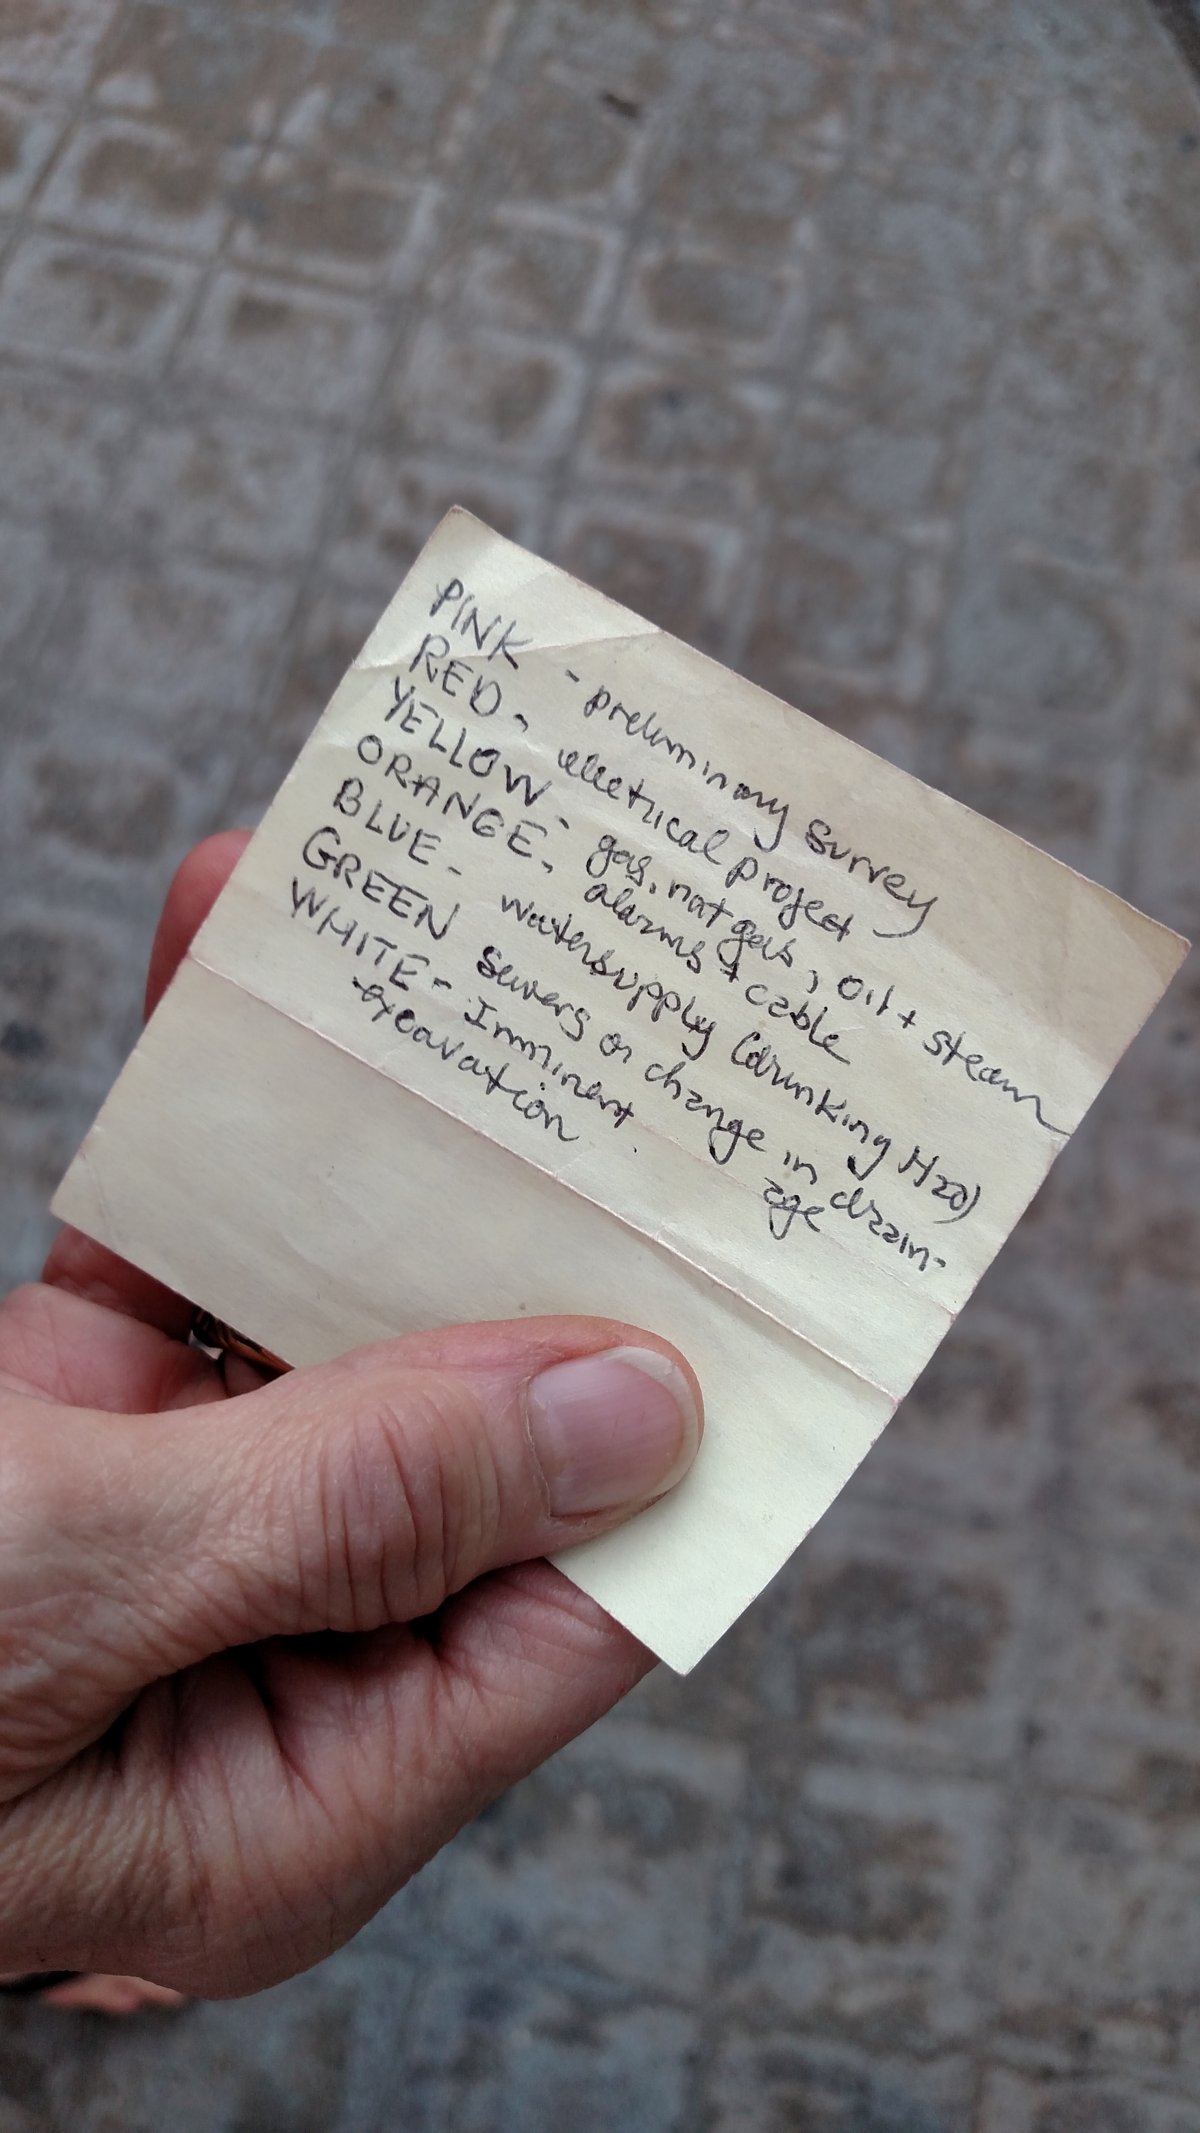 PINK - preliminary survey
RED - electrical project
YELLOW - gas, nat gas, oil + steam
ORANGE - alarms + cable
BLUE - watersupply (drinking H20)
GREEN sewers or change in drain-
age
WHITE - Imminent
excavation